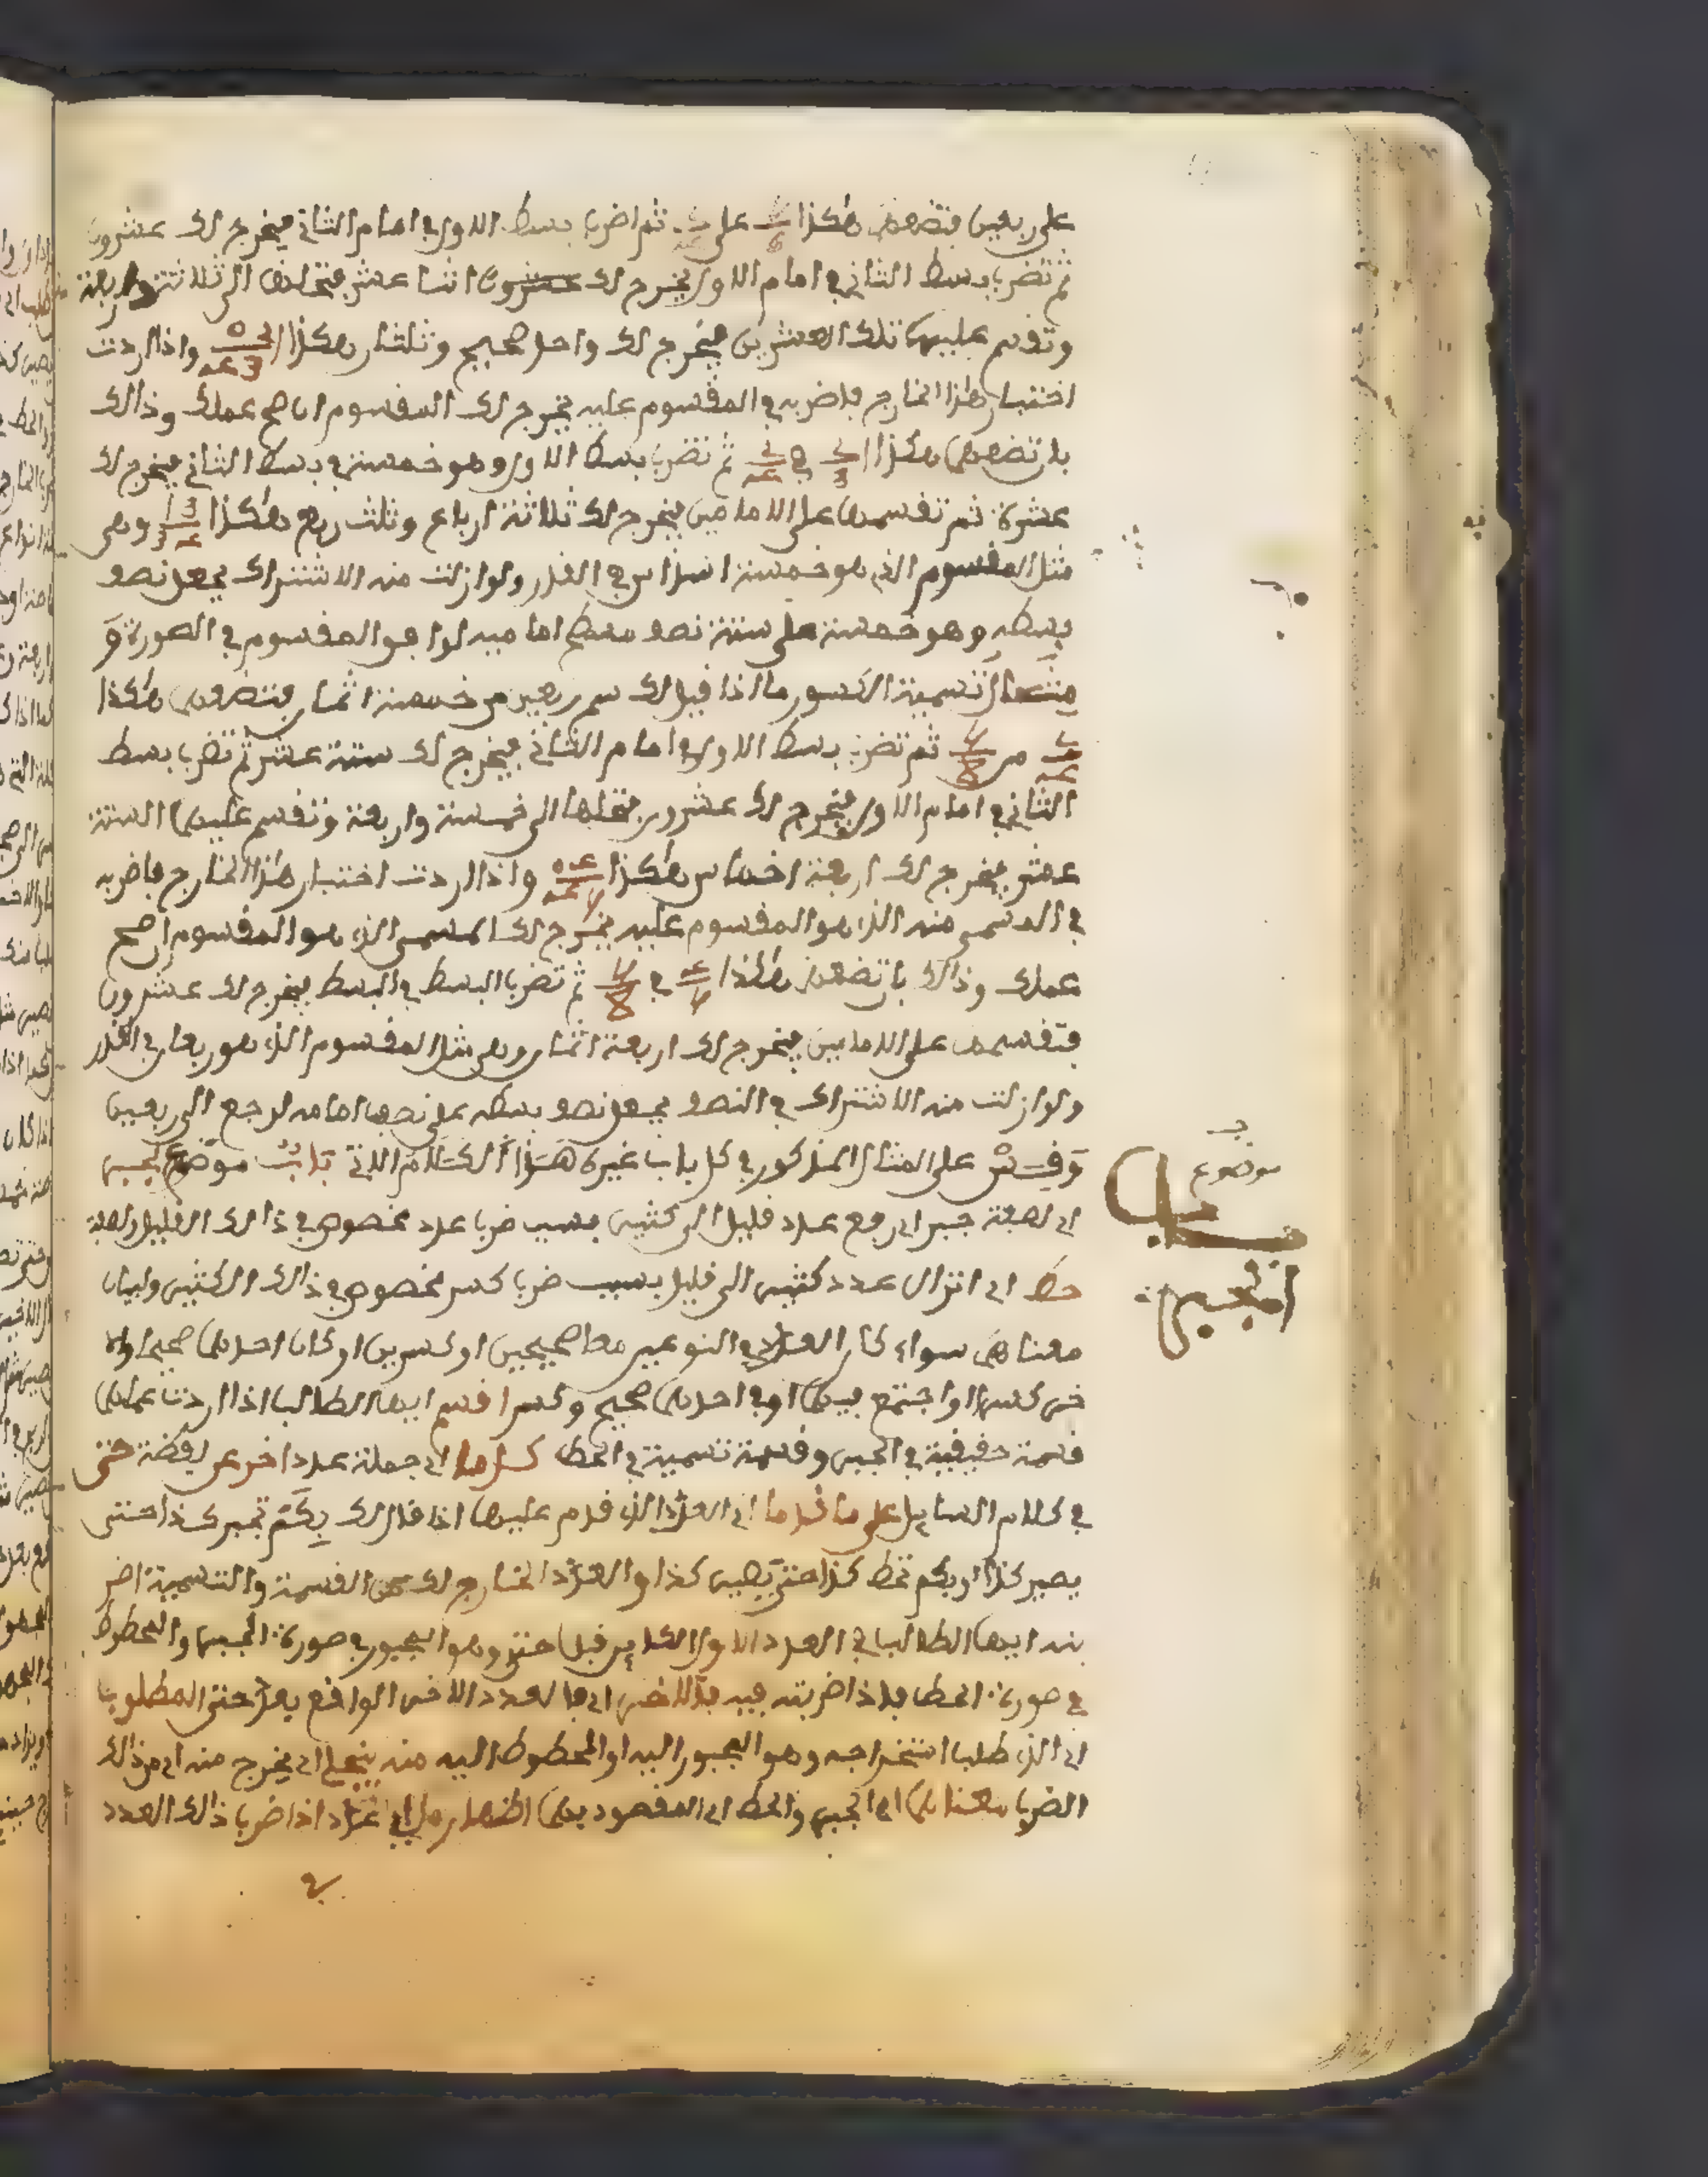 على ربعين فتضعهما هكذا على ثم اضرب بسط الاول في امام الثاني فيخرج لك عشرون
ثم تضرب بسط الثاني في امام الاول يخرج لك عشرون اثنا عشر فتحلها الى ثلاثة واربعة
وتقسم عليهما تلك العشرين فيخرج لك واحد صحيح وثلثان هكذا واذا اردت
اختبار هذا الخارج فاضربه في المقسوم عليه يخرج لك المقسوم ان صح عملك وذالك
بان تضعهما هكذا في ثم تضرب بسط الاول وهو خمسة في بسط الثاني فيخرج لك
عشرة ثم تقسمها على الامامين فيخرج لك ثلاثة ارباع وثلث ربع هكذا وهي
مثل المقسوم الذي هو خمسة اسداس في القدر ولو ازلت منه الاشتراك بجعل نصف
بسطه وهو خمسة على ستة نصف مسطح اماميه لوافق المقسوم في الصورة و
مثال تسمية الكسور ما اذا قيل لك سم ربعين من خمسة اثمان فتضعهما هكذا
من ثم تضرب بسط الاول في امام الثاني فيخرج لك ستة عشر ثم تضرب بسط
الثاني في امام الاول فيخرج لك عشرون فتحلها الى خمسة واربعة وتقسم عليهما الستة
عشر فيخرج لك اربعة اخماس هكذا واذا اردت اختبار هذا الخارج فاضربه
في المسمى منه الذي هو المقسوم عليه يخرج لك المسمى الذي هو المقسوم ان صح
عملك وذالك بان تضعهما هكذا في 8 ثم تضرب البسط في البسط يخرج لك عشرون
فتقسمها على الامامين فيخرج لك اربعة اثمان وهي مثل المقسوم الذي هو ربعان في القدر
ولو ازلت منه الاشتراك في النصف بجعل نصف بسطه على نصف امامه لرجع الى ربعين
وقس على المثال المذكور في كل باب غيره هذا الكلام الاتي باب موضع الجبر
اي لصعة جبر اي رفع عدد قليل الى كثير بسبب ضرب عدد مخصوص في ذالك القليل ولصعة
حط اي انزال عدد كثير الى قليل بسبب ضرب كسر مخصوص في ذالك الكثير ولبيان
معناهما سواء كان العدد في النوعين معا صحيحين او كسرين او كان احدهما صحيحا والا
خر كسرا او اجتمع فيهما او في احدهما صحيح وكسر اقسم ايها الطالب اذا اردت عملهما
قسمة حقيقية في الجبر وقسمة تسمية في الحط كل ما اي جملة عدد اخر عن لفظة حتى
في كلام السايل على ما قدما اي العدد الذي قدم عليها اذا قال لك بكم تجبر كذا حتى
يصير كذا او بكم تحط كذا حتى يصير كذا والعدد الخارج لك من القسمة والتسمية اضر
بنه ايها الطالب في العدد الاول الكاين قبل حتى وهو المجبور في صورة الجبر والمحطوط
في صورة الحط فاذا ضربته فيه فالاخر اي فالعدد الاخر الواقع بعد حتى المطلوب
اي الذي طلب استخراجه وهو المجبور اليه او المحطوط اليه منه ينجلي اي يخرج منه اي من ذالك
الضرب معناهما اي الجبر والحط اي المقصود بهما اظهار ما اي عدد اذا ضرب ذالك العدد
في
موضوع
باب
الجبر